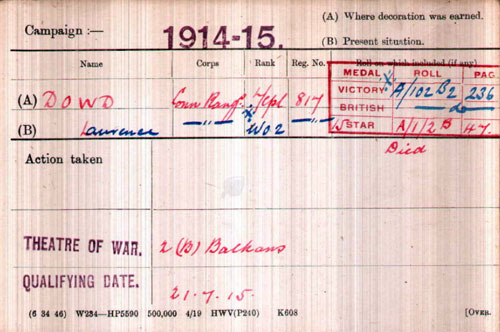 (A) Where decoration was earned.
Campaign :— 1914-15.
(B) Present situation.
Name Corps Rank Reg. No. Roll on which included (if any)
MEDAL ROLL PAGE
(A) DOWD Conn Rang. L/Cpl 817 VICTORY X A/102 B2 236
BRITISH —„— do
(B) Laurence —„— X WO2 15 STAR A/1/2 B 47.
Action taken Died
THEATRE OF WAR. 2 (B) Balkans
QUALIFYING DATE. 21.7.15.
(6 34 46) W234—HP5590 500,000 4/19 HWV(P240) K608 [OVER.